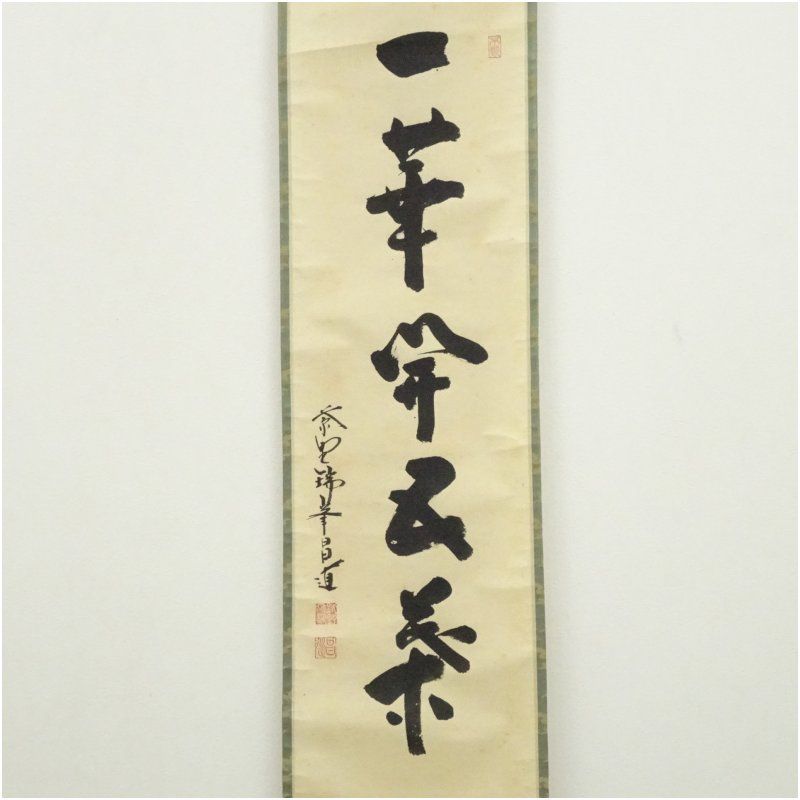 一華開五葉
紫野瑞峯昌道